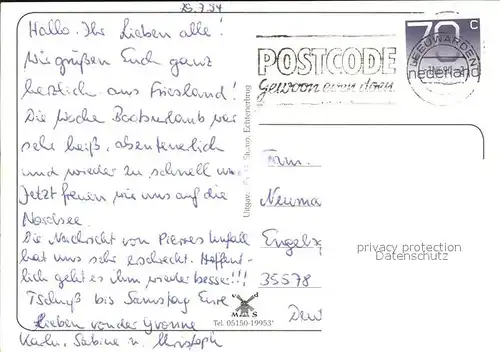 25.7.94
Hallo Ihr Lieben alle!
Wir grüßen Euch ganz
herzlich aus Friesland!
Die Woche Bootsurlaub war
sehr heiß, abenteuerlich
und wieder zu schnell
Jetzt freuen wir uns auf die
Nordsee.
Die Nachricht von Pierres Unfall
hat uns sehr erschreckt. Hoffent-
lich geht es ihm wieder besser!!!
Tschüß bis Samstag Eure
Lieben von der Yvonne
Karh, Sabine u. Christoph
70 c
nederland
LEEUWARDEN
POSTCODE
Gewoon even doen
Echtenerbrug
Fam.
Neuma
Engels
35578
privacy protection
Datenschutz
M S
Tel. 05150-19953*